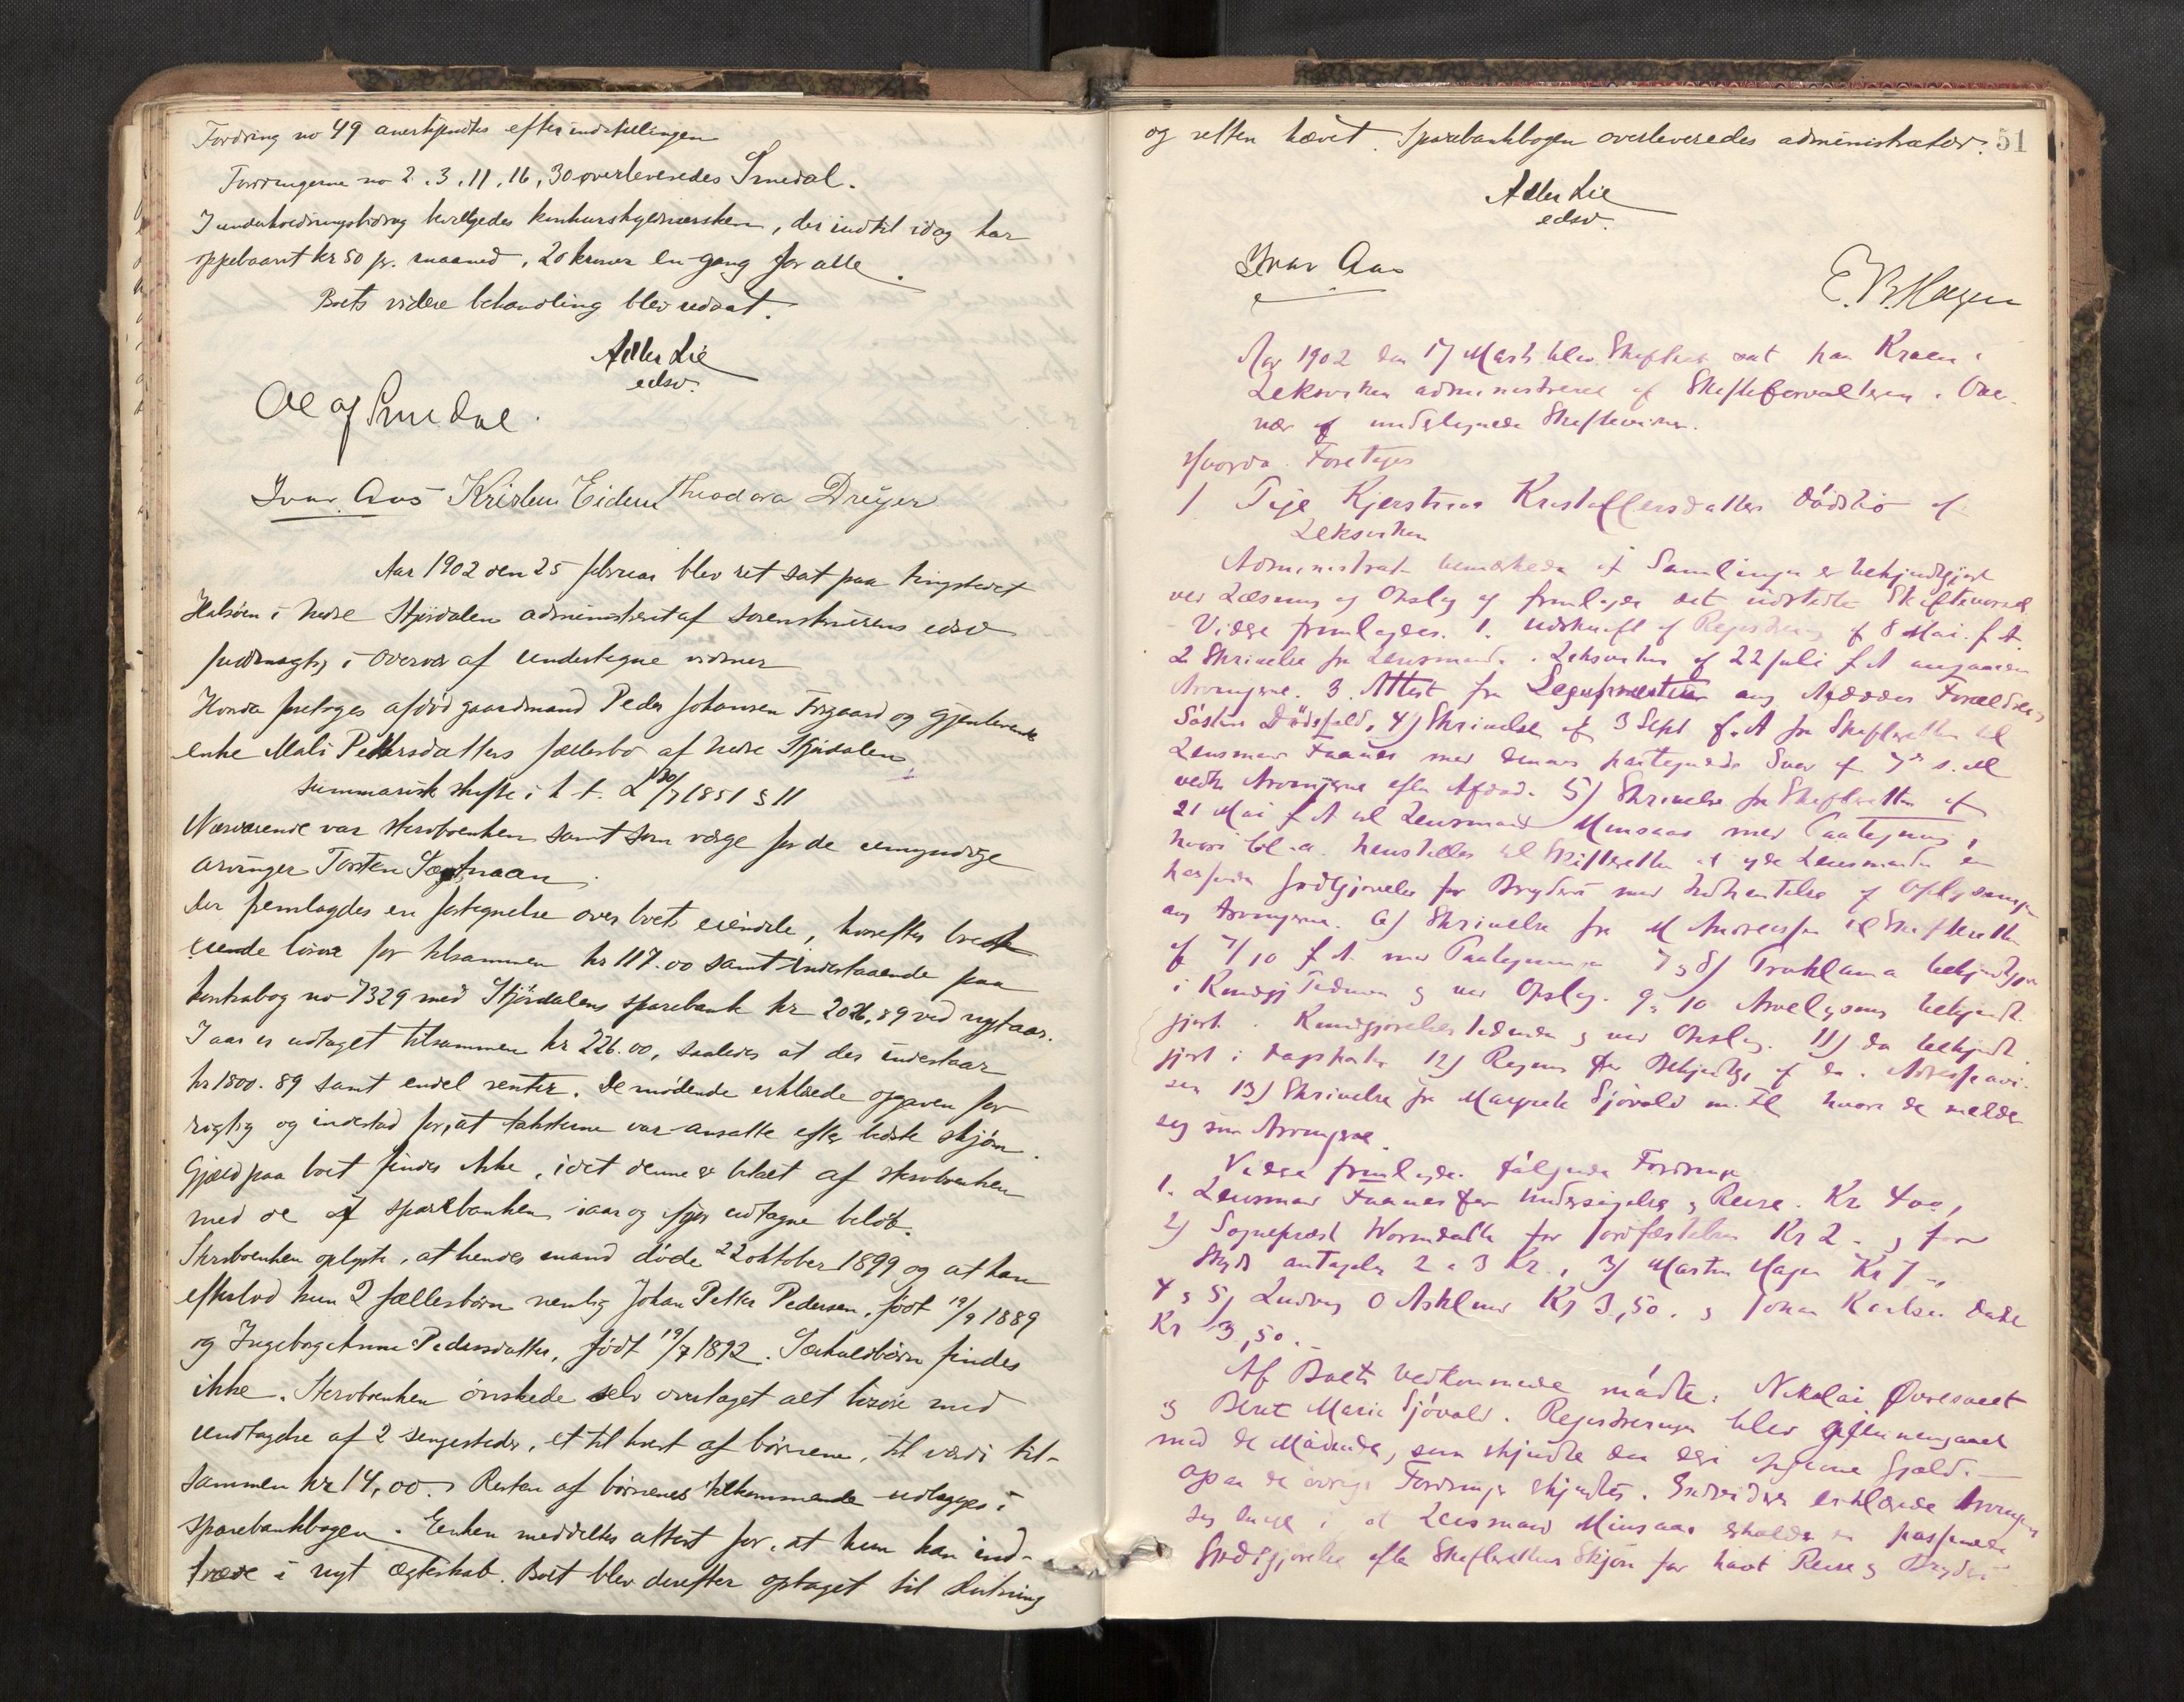 Fordring no 49 anerkjendtes efter indstillingen
Fordringerne no 2, 3, 11, 16, 30 overleveredes Smedal.
I underholdningsbidrag bevilgedes konkursskyldnersken, der indtil idag har
oppebaaret kr 50 pr. maaned, 20 kroner en gang for alle.
Boets videre behandling blev udsat.
Adler Lie
edsv.
Olaf Smedal.
Ivar Aas Kristen Eidem Theodora Dreyer
Aar 1902 den 25 februar blev ret sat paa tingstedet
Halsöen i nedre Stjördalen administreret af sorenskriverens edsv
fuldmægtig i overvær af undertegne vidner
Hvorda foretoges afdöd gaardmand Peder Johansen Forgaard og gjenlevende
enke Mali Pettersdatters fællesbo af nedre Stjördalen
summarisk skifte i h. t. L 30/7 1851 § 11
Nærværende var sterboenken samt som værge for de umyndige
arvinger Torsten
Der fremlagdes en fortegnelse over boets eiendele, hvorefter boet
eiende lösöre for tilsammen kr 117.00 samt indestaaende paa
kontrabog no 7329 med Stjördalens sparebank kr 2026,89 ved nytaar.
I aar er udtaget tilsammen kr 226.00, saaledes at der indestaar
kr 1800.89 samt endel renter. De mödende erklærede opgaven for
rigtig og indestod for, at taksterne var ansatte efter bedste skjön.
Gjæld paa boet findes ikke, idet denne er betalt af sterboenken
med de af sparebanken iaar og ifjor udtagne belöb.
Sterboenken oplyste, at hendes mand döde 22 oktober 1899 og at han
efterlod kun 2 fællesbörn nemlig Johan Petter Pedersen, födt 19/9 1889
og Ingeborg Anna Pedersdatter, födt 19/7 1892. Særkuldsbörn findes
ikke. Sterboenken önskede selv overtaget alt lösöre med
undtagelse af 2 sengesteder, et til hvert af börnene, til værdi til-
sammen kr 14,00. Resten af börnenes tilkommende udlægges i
sparebankbogen. Enken meddeltes attest for, at hun kan ind-
træde i nyt ægteskab. Boet blev derefter optaget til slutning
og retten hævet. Sparebankbogen overleveredes administrator. 51
Adler Lie
edsv.
Ivar Aas
E. B. Hagen
Aar 1902 den 17 Marts blev Skifteret sat paa Kraen i
Leksviken administreret af Skifteforvalteren i Over-
vær af undertegnede Skiftevidner.
Hvorda Foretoges
1 Pige Kjerstine Kristoffersdatters dödsbo af
Leksviken
Administrator bemærkede at Samlingen er bekjendtgjort
ved Læsning og Opslag og fremlagde det udstedte Skiftevarsel
Videre fremlagdes. 1. Udskrift af Registrering af 8 Mai f. A.
2 Skrivelse fra Lensmand i Leksviken af 22 Juli f A angaaende
Arvingerne. 3. Attest fra Sognepræsten ang Afdödes Forældres,
Söstres Dödsfald, 4) Skrivelse af 3 Sept f. A fra Skifteretten til
Lensmand Faanes med dennes paategnede Svar af 7de s. M
vedk Arvingerne efter Afdöde. 5) Skrivelse fra Skifteretten af
21 Mai f A til Lensmand Minsaas med Paategning,
hvori bl. a. henstilles til Skifteretten at yde Lensmanden en
passende godtgjörelse for Bryderi med Indhentelse af Oplysninger
ang Arvingerne. 6) Skrivelse fra M Andreassen til Skifteretten
af 7/10 f A. med Paategninger 7 & 8) Proklama bekjendtgjort
i Kundgj Tidende og ved Opslag. 9 & 10 Arvelysning bekjendt-
gjort i Kundgjörelsestidende og ved Opslag. 11) do bekjendt-
gjort i Dagsposten 12) Regning for Bekjendtg af do i Adresseavi-
sen 13) Skrivelse fra Margrete Sjövold m. Fl hvori de melder
sig som Arvingerne.
Videre fremlagdes fölgende Fordringer
1. Lensmand Faanes for Undersögelse & Reise. Kr 4 00,
2) Sognepræst Wormdahl for Jordfæstelsen Kr 2. & for
Skyds antagelig 2 a 3 Kr., 3) Martin Hagen Kr 7 -,
4 & 5) Ludvig O Asklund Kr 3,50. & Johan Karlsen
Kr 3,50.
Af Boets Vedkommende mödte: Nikolai
& Beret Marie Sjövold. Registreringen blev gjennemgaaet
med de Mödende, som erkjendte den deri opgivne Gjæld. -
Ogsaa de övrige Fordringer erkjendtes. Endvidere erklærede Arvingerne
sig enige i at Lensmand Minsaas erholder en passende
Godtgjörelse efter Skifterettens Skjön for havt Reise & Bryderi